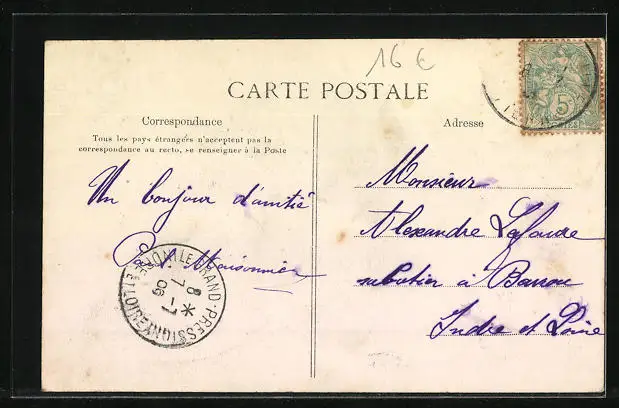 16 €
CARTE POSTALE
Correspondance
Tous les pays étrangers n'acceptent pas la
correspondance au recto, se renseigner à la Poste
Adresse
5
Un bonjour d'amitié
Maisonnier
LE GRAND-PRESSIGNY
8 - 7
06
INDRE-ET-LOIRE
Monsieur
Alexandre
à Barrou
Indre et Loire